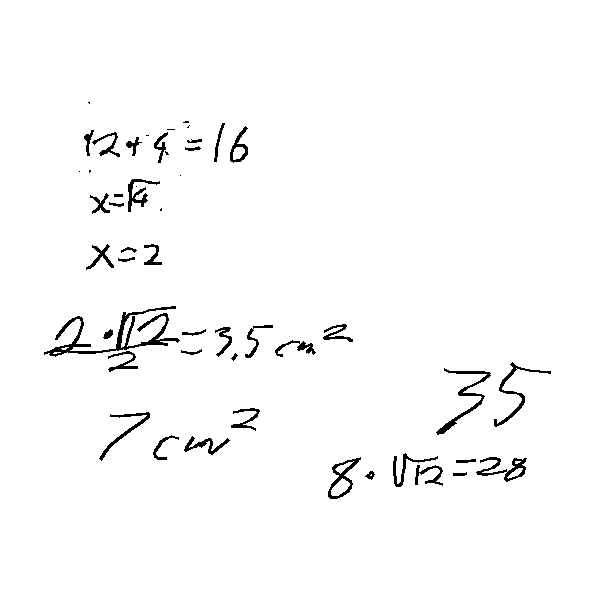 12+4=16
x=√4
x=2
2·√12/2=3,5 cm²
7 cm²
35
8·√12=28